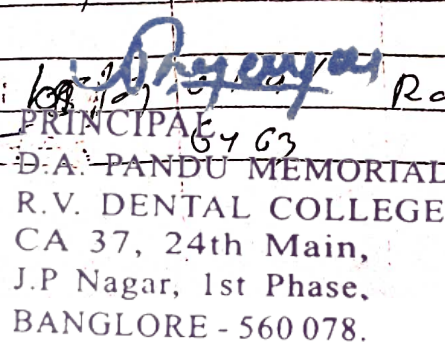 PRINCIPAL
64 63
D.A. PANDU MEMORIAL
R.V. DENTAL COLLEGE
CA 37, 24th Main,
J.P Nagar, 1st Phase,
BANGLORE - 560 078.